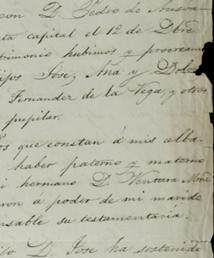 con D. Pedro de
ta capital el 12 de Dbre
trimonio hubimos y procreamos
ijos José, Ana y
Fernandez de la Vega y otros
pupilar.
os que constan á mis alba-
haber paterno y materno
i hermano D. Ventura
ron a poder de mi marido
nsable su testamentaria.
D. José ha sostenido